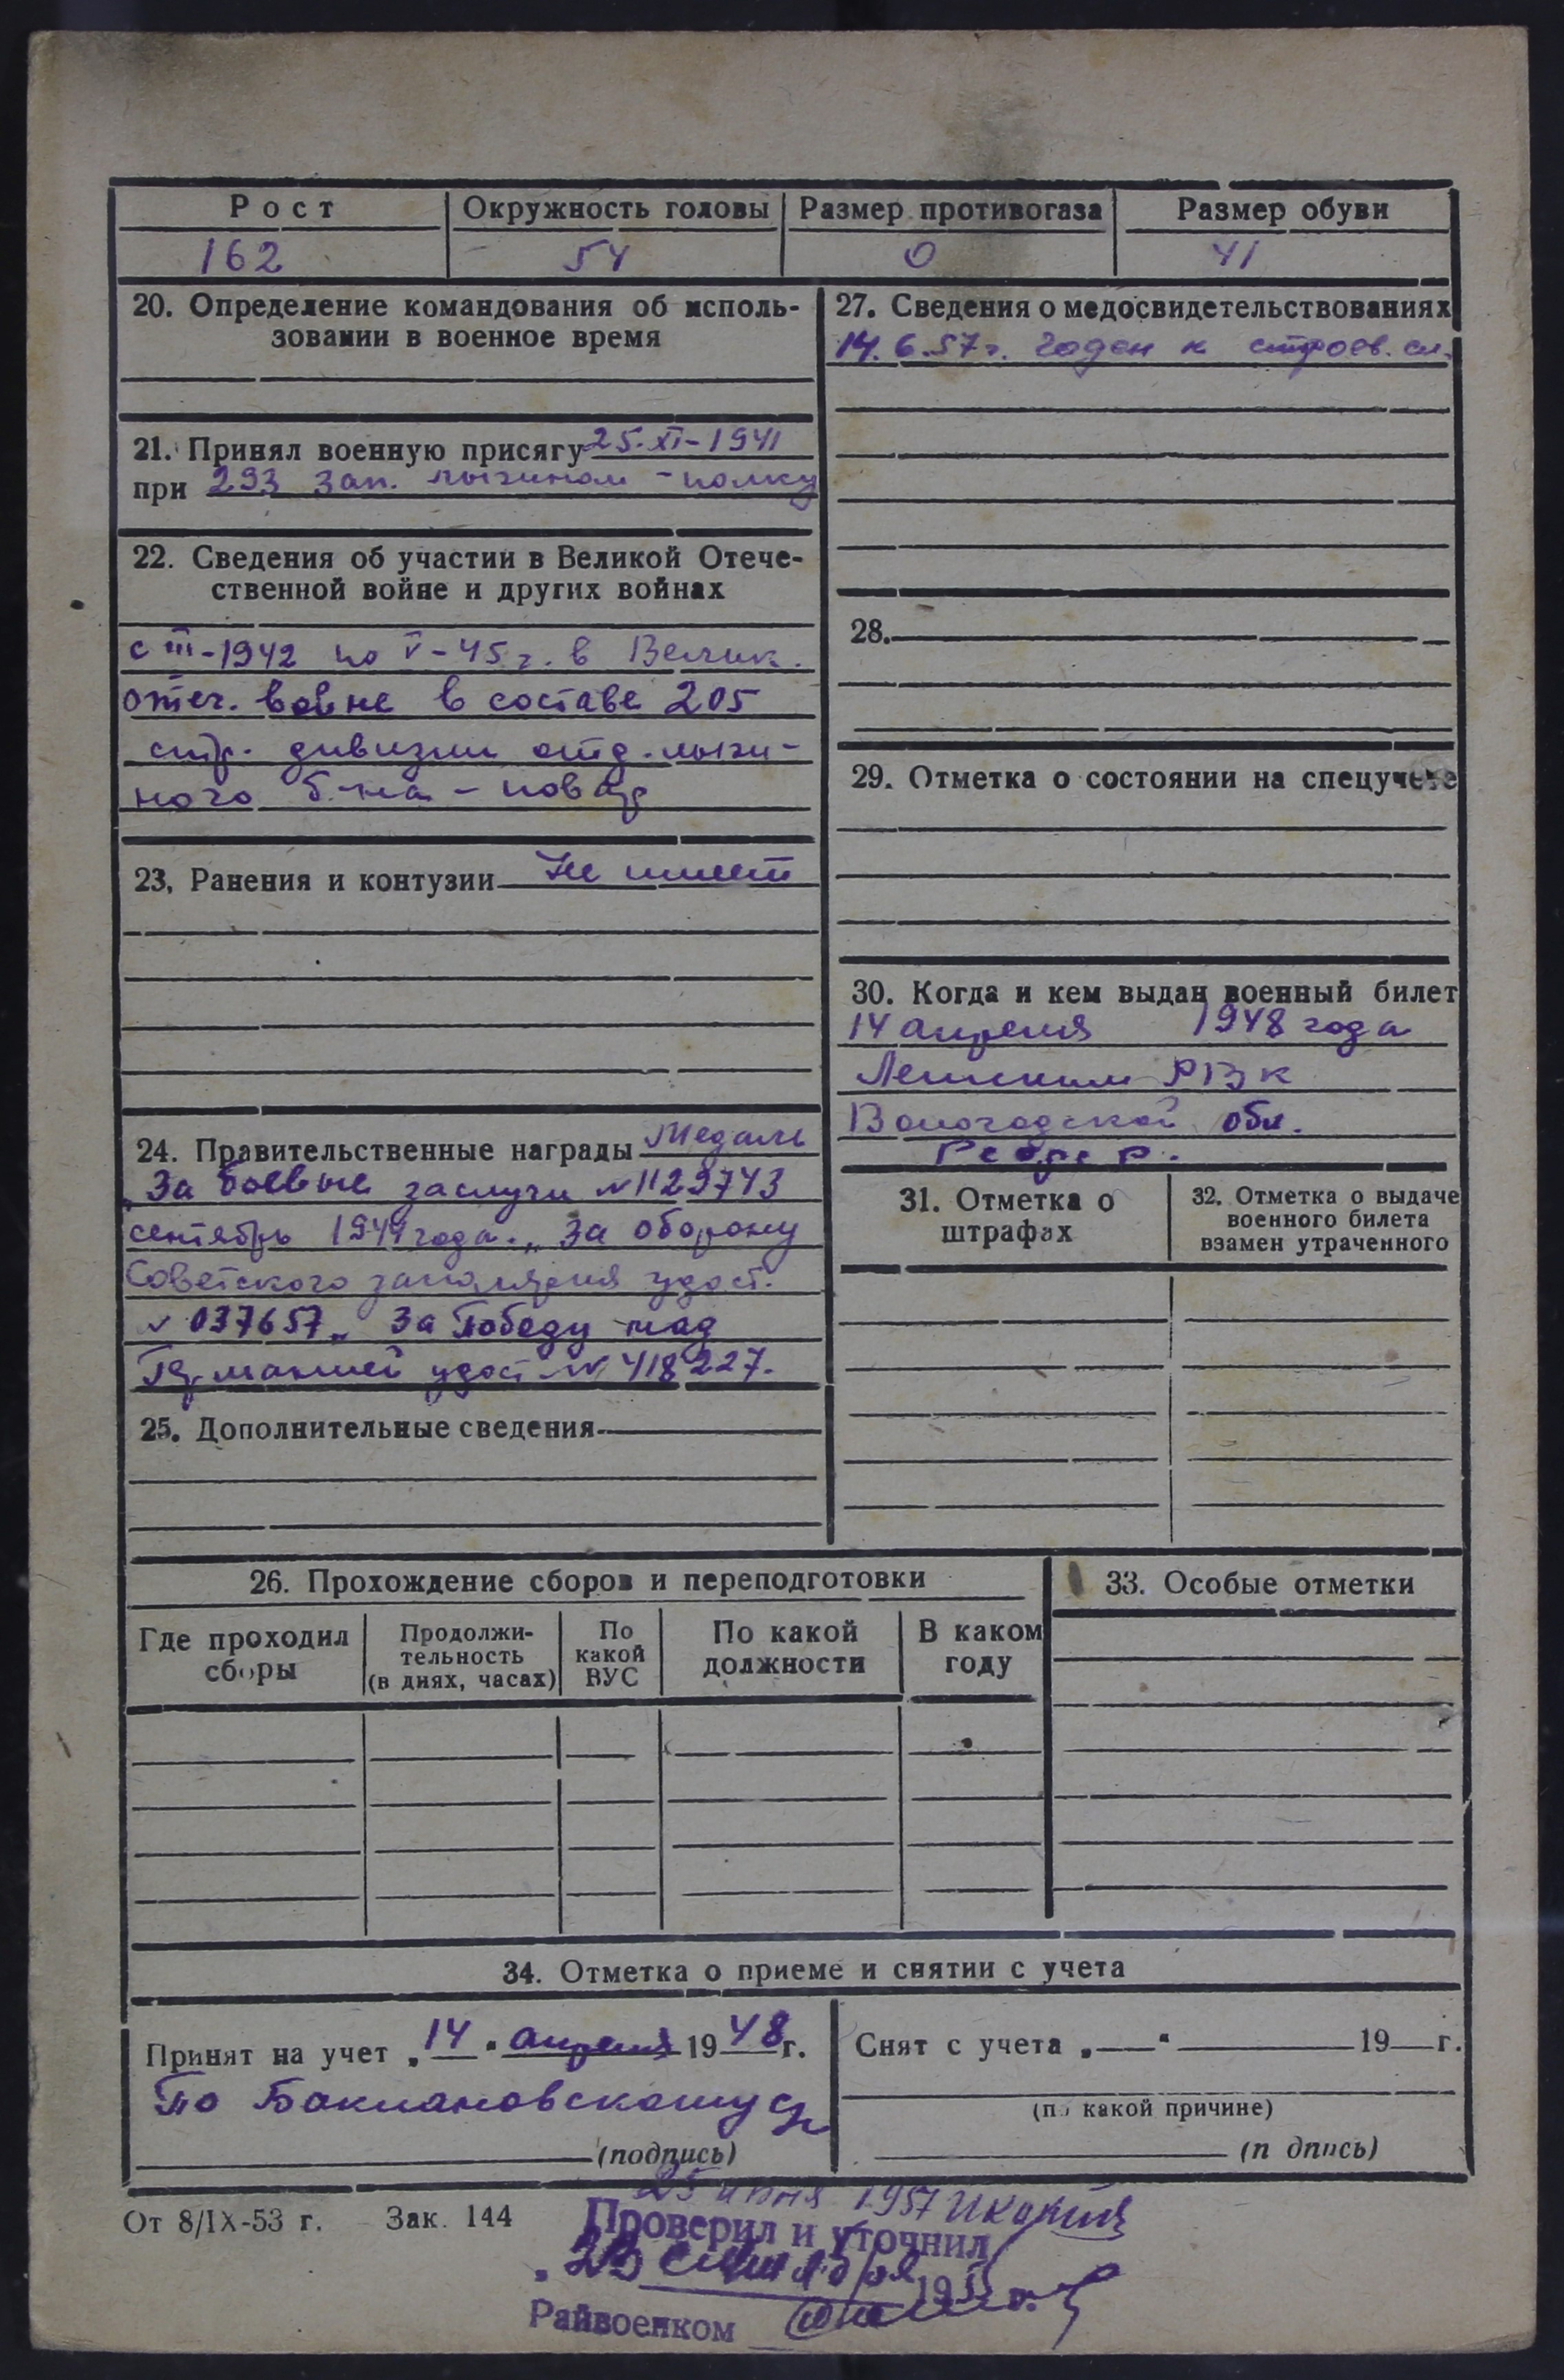 Рост
Окружность головы
Размер противогаза
Размер обуви
162
54
0
41
20. Определение командования об исполь-
зовании в военное время
21. Принял военную присягу 25-XI-1941
при 293 зап. лыжном - полку
22. Сведения об участии в Великой Отече-
ственной войне и других войнах
с III-1942 по V-45 г. в Велик.
отеч. войне в составе 205
стр. дивизии отд. лыж-
ного б-на - повар
23. Ранения и контузии Не имеет
24. Правительственные награды Медаль
„За боевые заслуги N 1129743
сентябрь 1944 года. „За оборону
Советского заполярия удост.
N 037657 „За Победу над
Германией удост N 418227.
25. Дополнительные сведения
27. Сведения о медосвидетельствованиях
14.6.57 г. Годен к строев. сл.
28.
29. Отметка о состоянии на спецучете
30. Когда и кем выдан военный билет
14 апреля 1948 года
РВК
Вологодской обл.
31. Отметка о
штрафах
32. Отметка о выдаче
военного билета
взамен утраченного
26. Прохождение сборов и переподготовки
Где проходил
сборы
Продолжи-
тельность
(в днях, часах)
По
какой
ВУС
По какой
должности
В каком
году
33. Особые отметки
34. Отметка о приеме и снятии с учета
Принят на учет „14“ апреля 1948 г.
По Баклановскому
(подпись)
Снят с учета „ “ 19 г.
(по какой причине)
(п дпись)
От 8/IX-53 г. Зак. 144
25 июня 1957
Проверил и уточнил
19 г.
Райвоенком